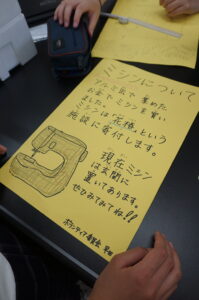 ミシンについて
アルミ缶で集めた
お金でミシンを買い
ました。
ミシンは「花橋」という
施設に寄付します。
現在ミシン
は玄関に
置いてあります。
ぜひみてね!!
ボランティア委員会